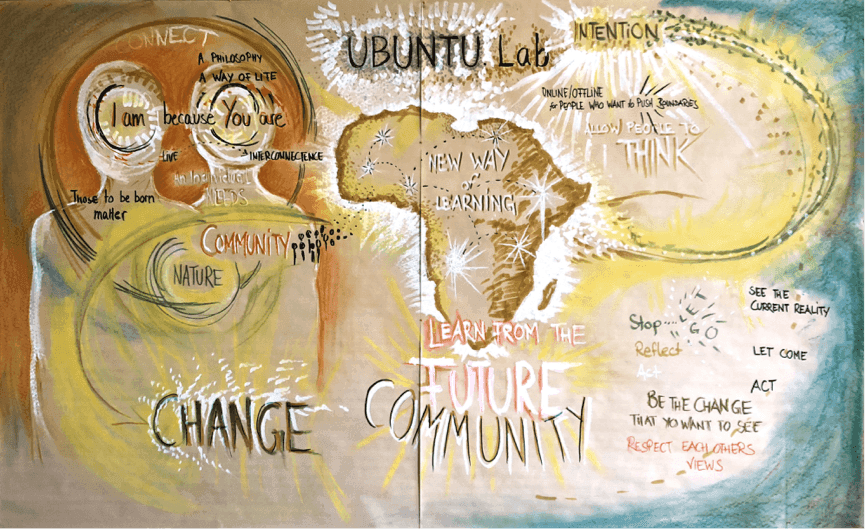 CONNECT
A PHILOSOPHY
A WAY OF LIFE
I am because You are
LIVE
INTERCONNECTENCE
An Individual
NEEDS
Those to be born
matter
COMMUNITY
NATURE
CHANGE
UBUNTU Lab
NEW WAY
OF
LEARNING
LEARN FROM THE
FUTURE
COMMUNITY
INTENTION
ONLINE/OFFLINE
for PEOPLE WHO WANT to PUSH BOUNDARIES
ALLOW PEOPLE TO
THINK
Stop
LET
GO
Reflect
Act
SEE THE
CURRENT REALITY
LET COME
ACT
BE THE CHANGE
THAT YO WANT TO SEE
RESPECT EACH OTHERS
VIEWS